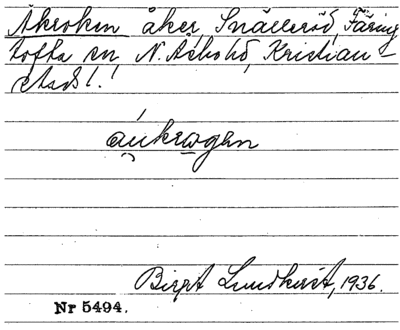 Åkroken åker, Snälleröd, Färing
tofta sn N. Åsbo hd, Kristian-
stads l.
áukrωgən
Birgit Lundkvist, 1936.
Nr 5494.